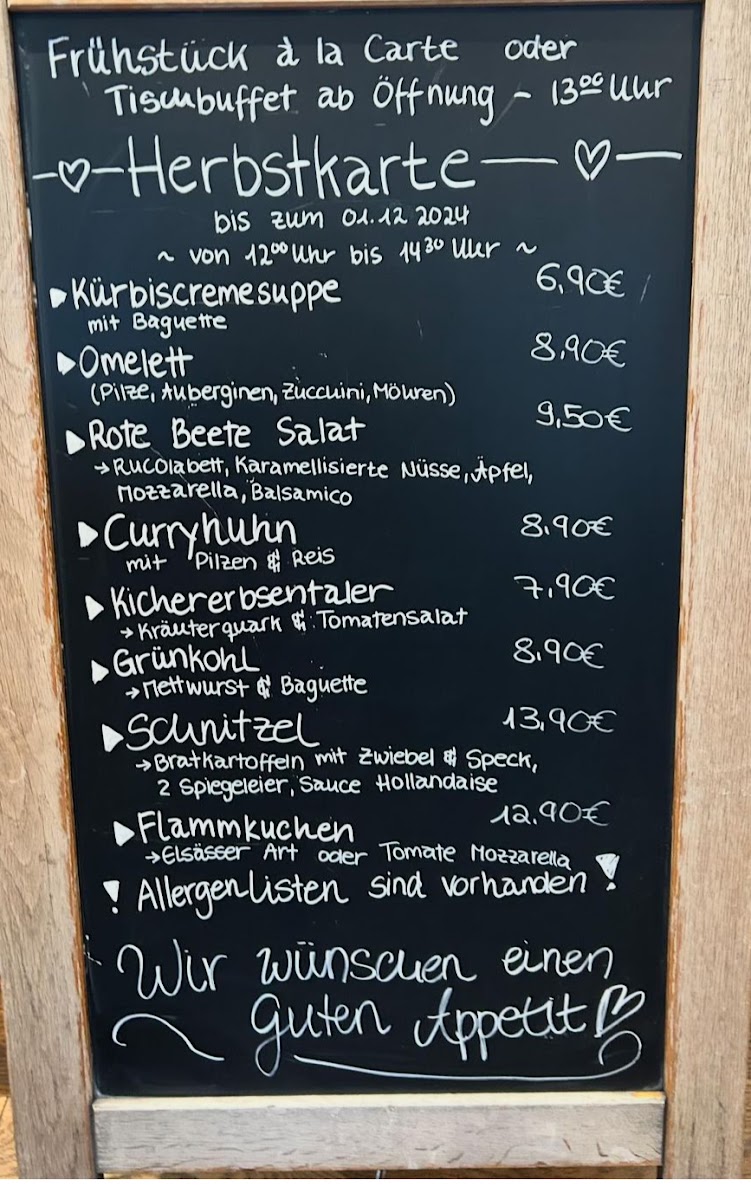 Frühstück à la Carte oder
Tischbuffet ab Öffnung - 13⁰⁰ Uhr
Herbstkarte
bis zum 01.12 2024
~ von 12⁰⁰ Uhr bis 14³⁰ Uhr ~
Kürbiscremesuppe 6,90€
mit Baguette
Omelett 8,90€
(Pilze, Auberginen, Zucchini, Möhren)
Rote Beete Salat 9,50€
→ Rucolabett, Karamellisierte Nüsse, Äpfel,
Mozzarella, Balsamico
Curryhuhn 8,90€
mit Pilzen & Reis
Kichererbsentaler 7,90€
→ Kräuterquark & Tomatensalat
Grünkohl 8,90€
→ Mettwurst & Baguette
Schnitzel 13,90€
→ Bratkartoffeln mit Zwiebel & Speck,
2 Spiegeleier, Sauce Hollandaise
Flammkuchen 12,90€
→ Elsässer Art oder Tomate Mozzarella
! Allergenlisten sind vorhanden !
Wir wünschen einen
guten Appetit